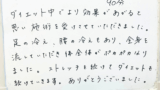 40分
ダイエット中でより効果があがると
思い施術を受けさせていただきました。
足の冷え、腰の冷えもあり、全身を
流していただき体全体がぽかぽかになり
ました。ストレッチも続けてダイエットも
続けていきます。ありがとうございました。